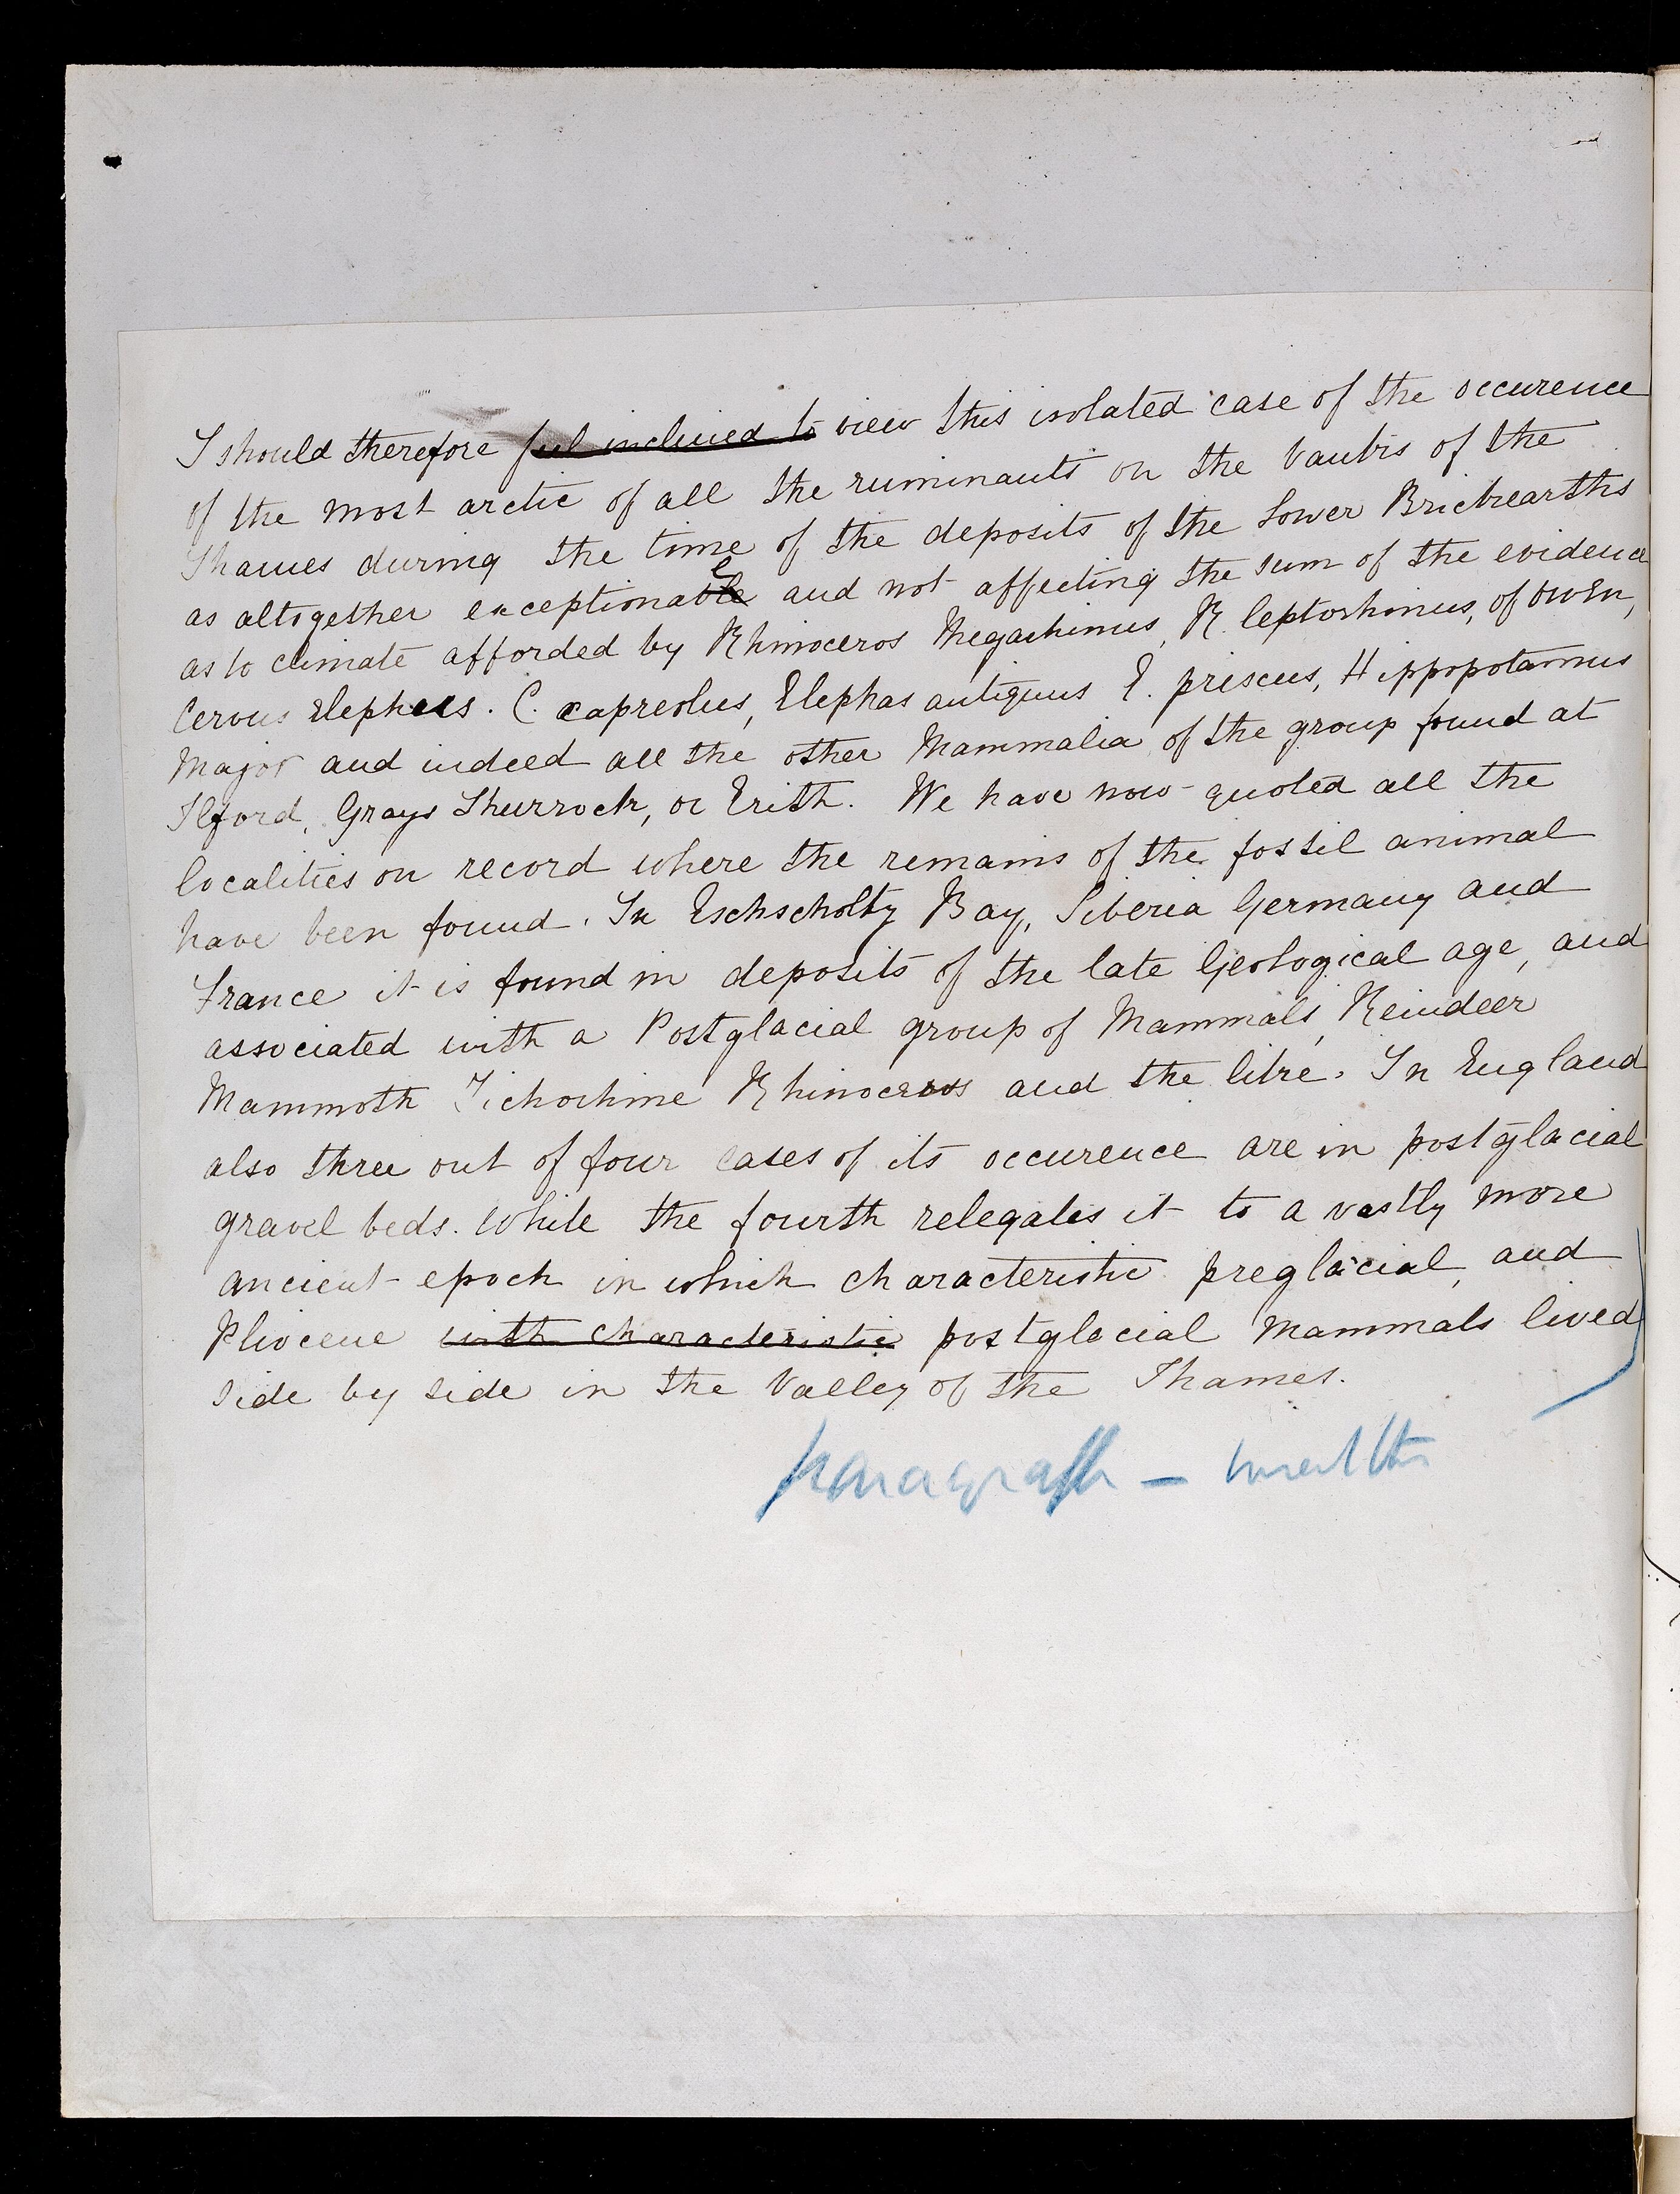 I should therefore feel inclined to view this isolated case of the occurence
of the most arctic of all the ruminants on the banks of the
Thames during the time of the deposits of the Lower Brickearths
as altogether exceptional and not affecting the sum of the evidence
as to climate afforded by Rhinoceros Megarhinus, R. leptorhinus, of Owen,
Cervus Elephus. C. capreolus, Elephas antiquus E. priscus, Hippopotamus
Major and indeed all the other Mammalia of the group found at
Ilford, Grays Thurrock, or Erith. We have now quoted all the
localities on record where the remains of the fossil animal
have been found. In Eschscholtz Bay, Siberia Germany and
France it is found in deposits of the late Geological age, and
associated with a Postglacial group of Mammals, Reindeer
Mammoth Tichorhine Rhinoceros and the like. In England
also three out of four cases of its occurence are in postglacial
gravel beds. While the fourth relegates it to a vastly more
ancient epoch in which characteristic preglacial, and
Pliocene with characteristic postglacial mammals lived
side by side in the Valley of the Thames.
paragraph –